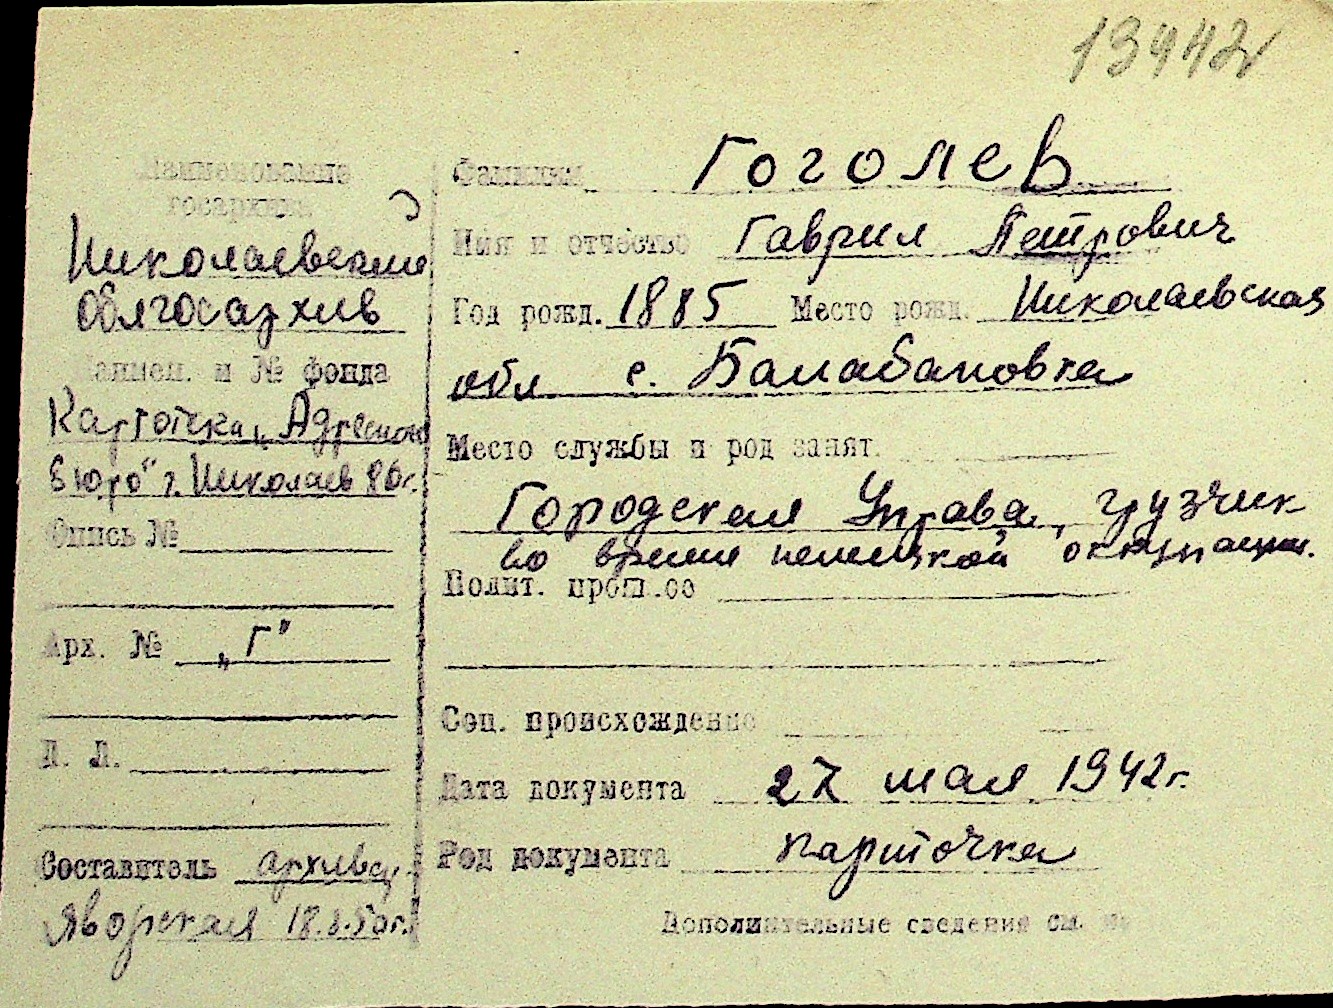 13442
Наименование
госархива
Николаевский
облгосархив
Наимен. и № фонда
Картотека „Адресного
бюро" г. Николаев
Опись №
Арх. № „Г"
Л. Л.
Составитель архива,
Яворская 18.8.50г.
Фамилия Гоголев
Имя и отчество Гаврил Петрович
Год рожд. 1885 Место рожд. Николаевская
обл. с. Балабановка
Место службы и род занят.
Городская Управа, грузчик
во время немецкой оккупации.
Полит. прош.ое
Соц. происхождение
Дата документа 27 мая 1942г.
Род документа карточка
Дополнительные сведения см. на